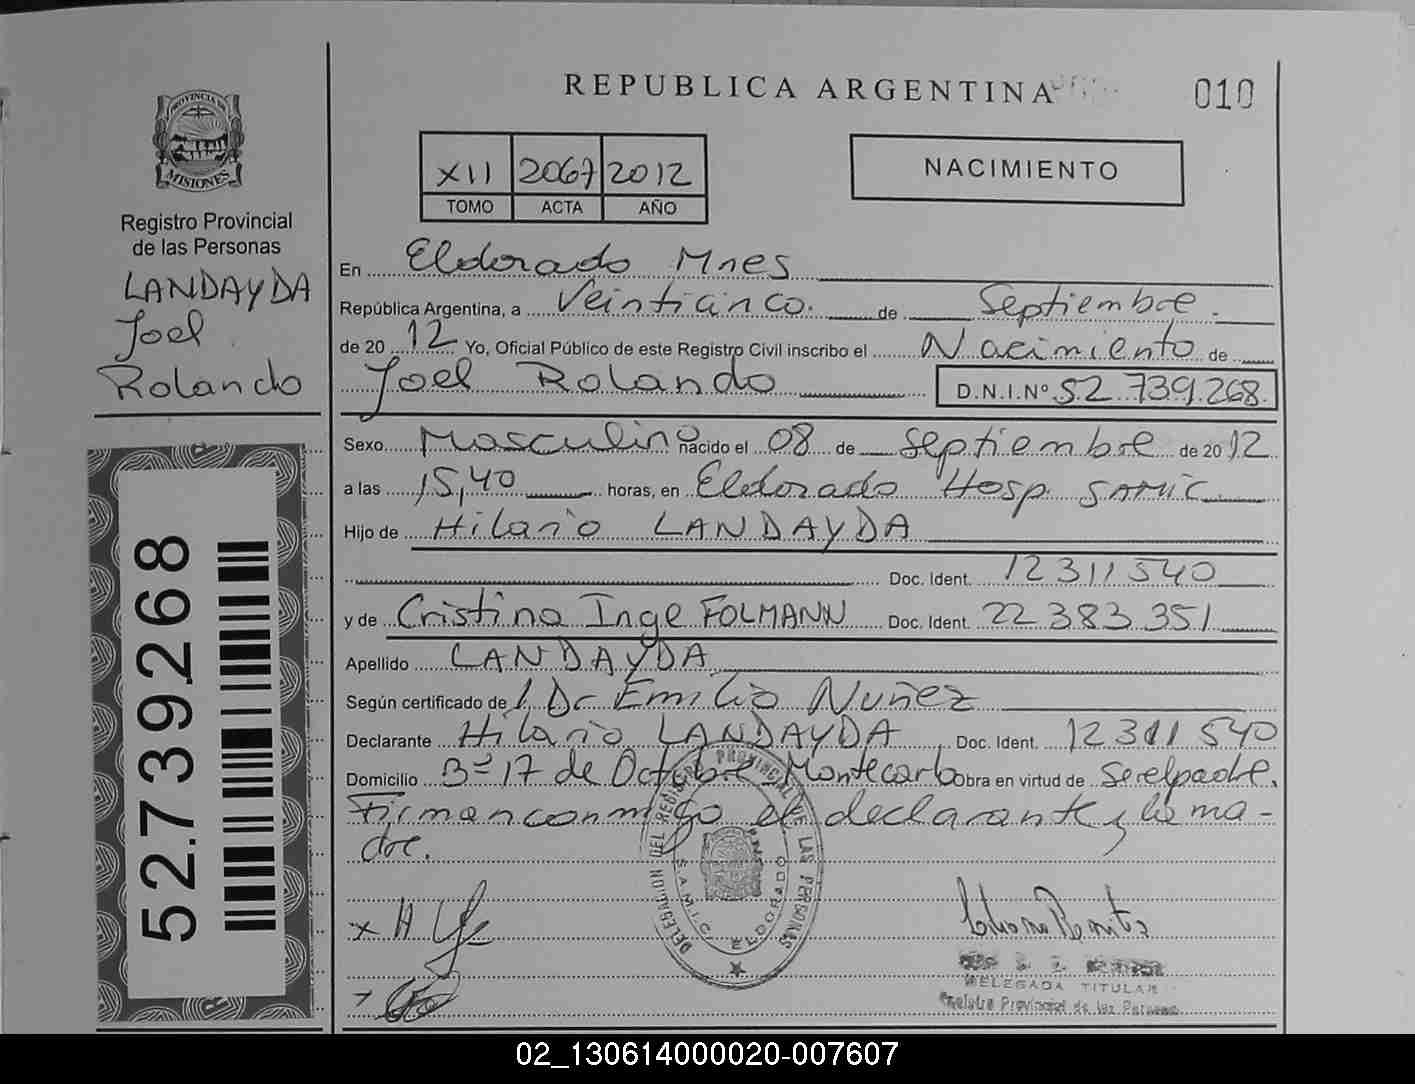 REPUBLICA ARGENTINA
010
PROVINCIA DE
MISIONES
Registro Provincial
de las Personas
LANDAYDA
Joel
Rolando
52.739.268
XII 2067 2012
TOMO ACTA AÑO
NACIMIENTO
En Eldorado Mnes
República Argentina, a Veinticinco de Septiembre.
de 20 12 Yo, Oficial Público de este Registro Civil inscribo el Nacimiento de
Joel Rolando D.N.I.Nº 52 739.268.
Sexo Masculino nacido el 08 de Septiembre de 2012
a las 15,40 horas, en Eldorado Hosp. SAMIC
Hijo de Hilario LANDAYDA
Doc. Ident. 12311540
y de Cristina Inge FOLMANN Doc. Ident. 22 383 351
Apellido LANDAYDA
Según certificado de Dr Emilio Nuñez
Declarante Hilario LANDAYDA, Doc. Ident. 12311540
Domicilio Bº 17 de Octubre Montecarlo Obra en virtud de Ser el padre.
Firman conmigo el declarante y la ma-
dre.
DELEGACION DEL REGISTRO PROVINCIAL DE LAS PERSONAS
S.A.M.I.C. ELDORADO
DELEGADA TITULAR
Registro Provincial de las Personas
02_130614000020-007607